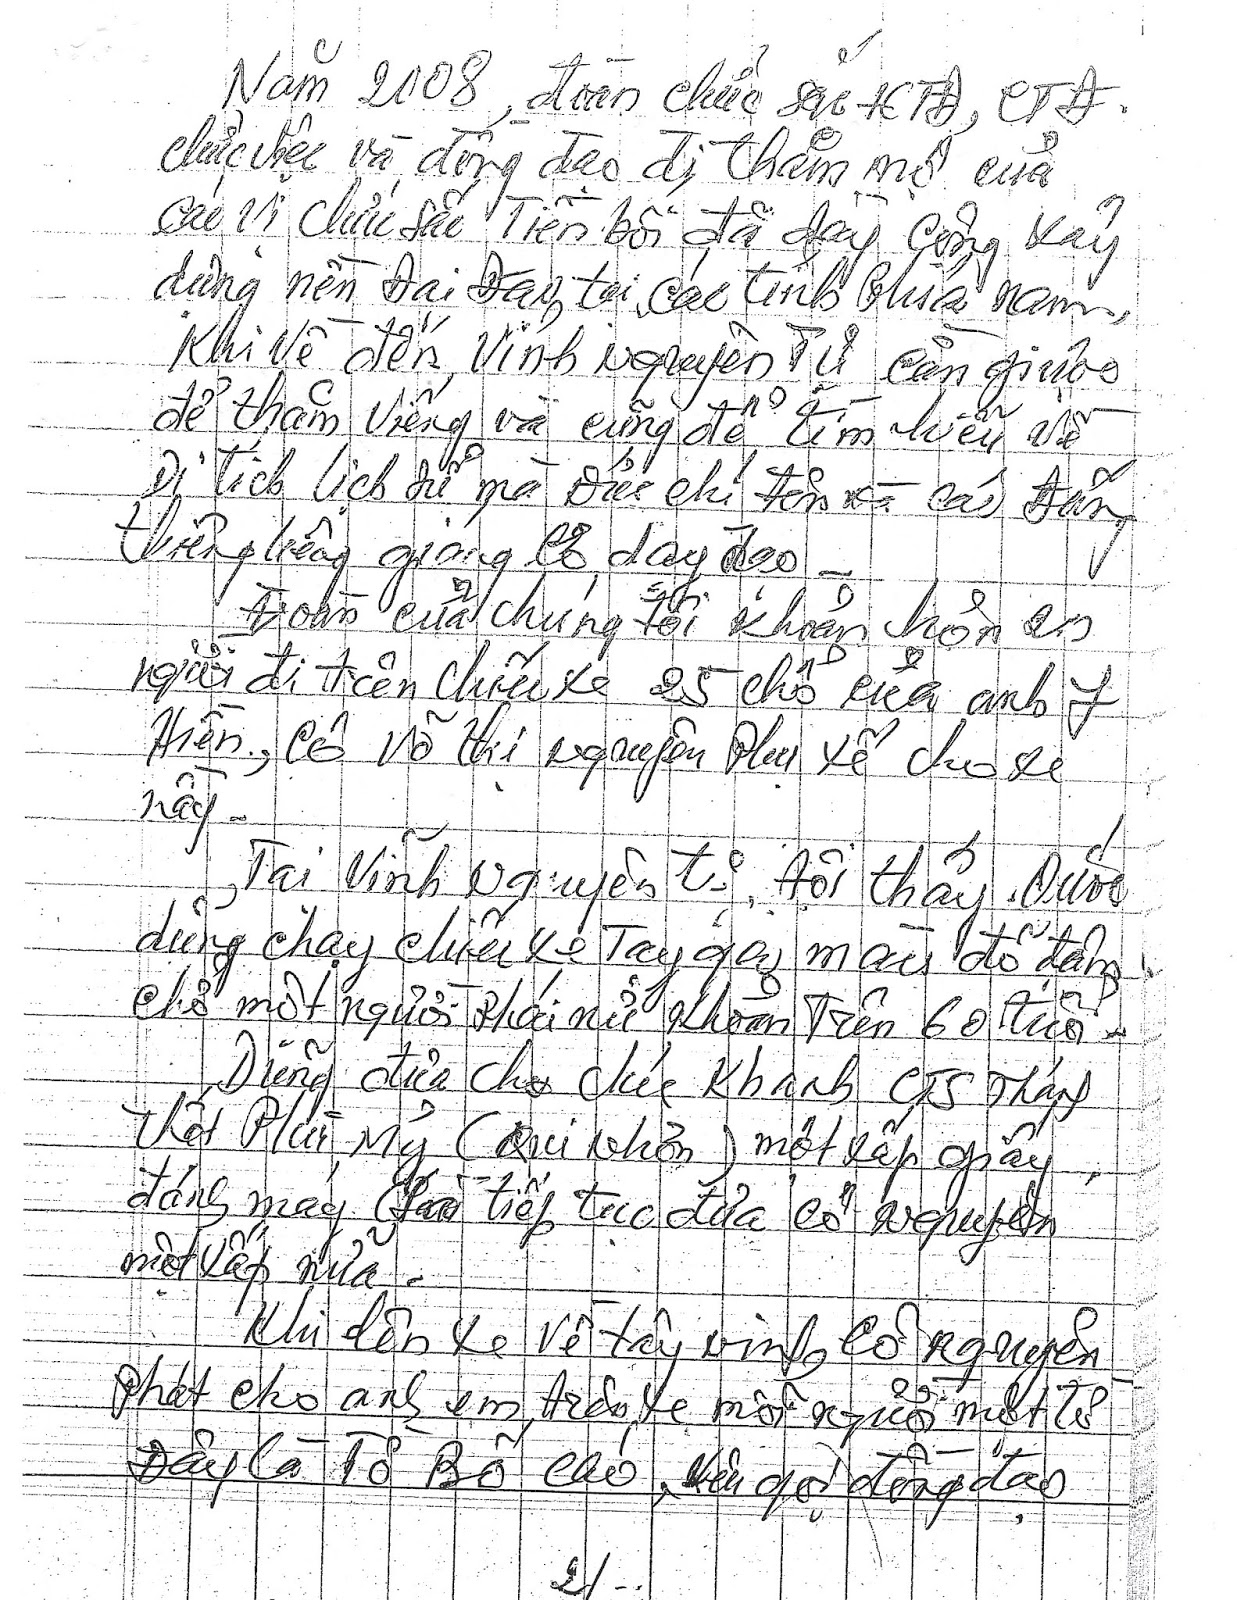 Năm 2008, đoàn chức sắc HTĐ, CTĐ.
chức việc và đồng đạo đi thăm mộ của
các vị chức sắc Tiền bối đã dày công xây
dựng nền Đại Đạo, tại các tỉnh phía nam,
Khi về đến Vĩnh Nguyên Tự Cần giuộc
để thăm viếng và cũng để tìm hiểu về
Di tích lịch sử mà Đức chí tôn và các Đấng
thiêng liêng giáng cơ dạy đạo -
Đoàn của chúng tôi khoản hơn 20
người đi trên chiếc xe 25 chổ của anh 7
Hiền, Cô Võ thị Nguyên Phụ xế cho xe
nầy -
Tại Vĩnh Nguyên tự, tôi thấy Quốc
dũng chạy chiếc xe Tay ga màu đỏ đậm
chở một người phái nữ khoản Trên 60 tuổi -
Dũng đưa cho chức Khanh CTS
thất Phù Mỹ (Qui Nhơn) một xấp giấy,
đánh máy tiếp tục đưa cô Nguyên
một xấp nữa -
Khi lên xe về tây ninh, Cô Nguyên
phát cho anh em trên xe mỗi người một tờ
Đây là Tờ Bố cáo, kêu gọi đồng đạo
2/...